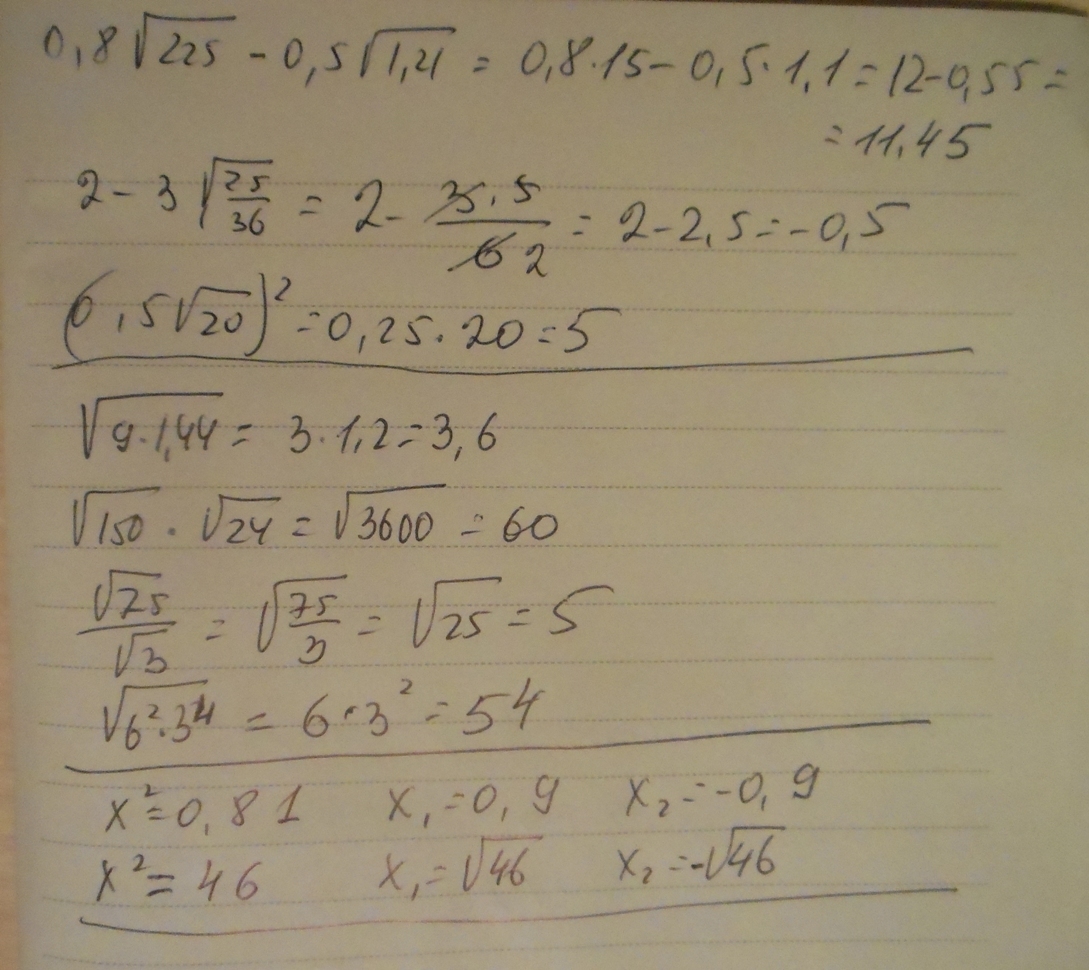 0,8√225 - 0,5√1,21 = 0,8·15 - 0,5·1,1 = 12-0,55 =
= 11,45
2 - 3√(25/36) = 2 - (3·5)/(6 2) = 2 - 2,5 = -0,5
(0,5√20)² = 0,25·20 = 5
√(9·1,44) = 3·1,2 = 3,6
√150 · √24 = √3600 = 60
√75/√3 = √(75/3) = √25 = 5
√(6²·3⁴) = 6·3² = 54
x² = 0,81 x₁ = 0,9 x₂ = -0,9
x² = 46 x₁ = √46 x₂ = -√46